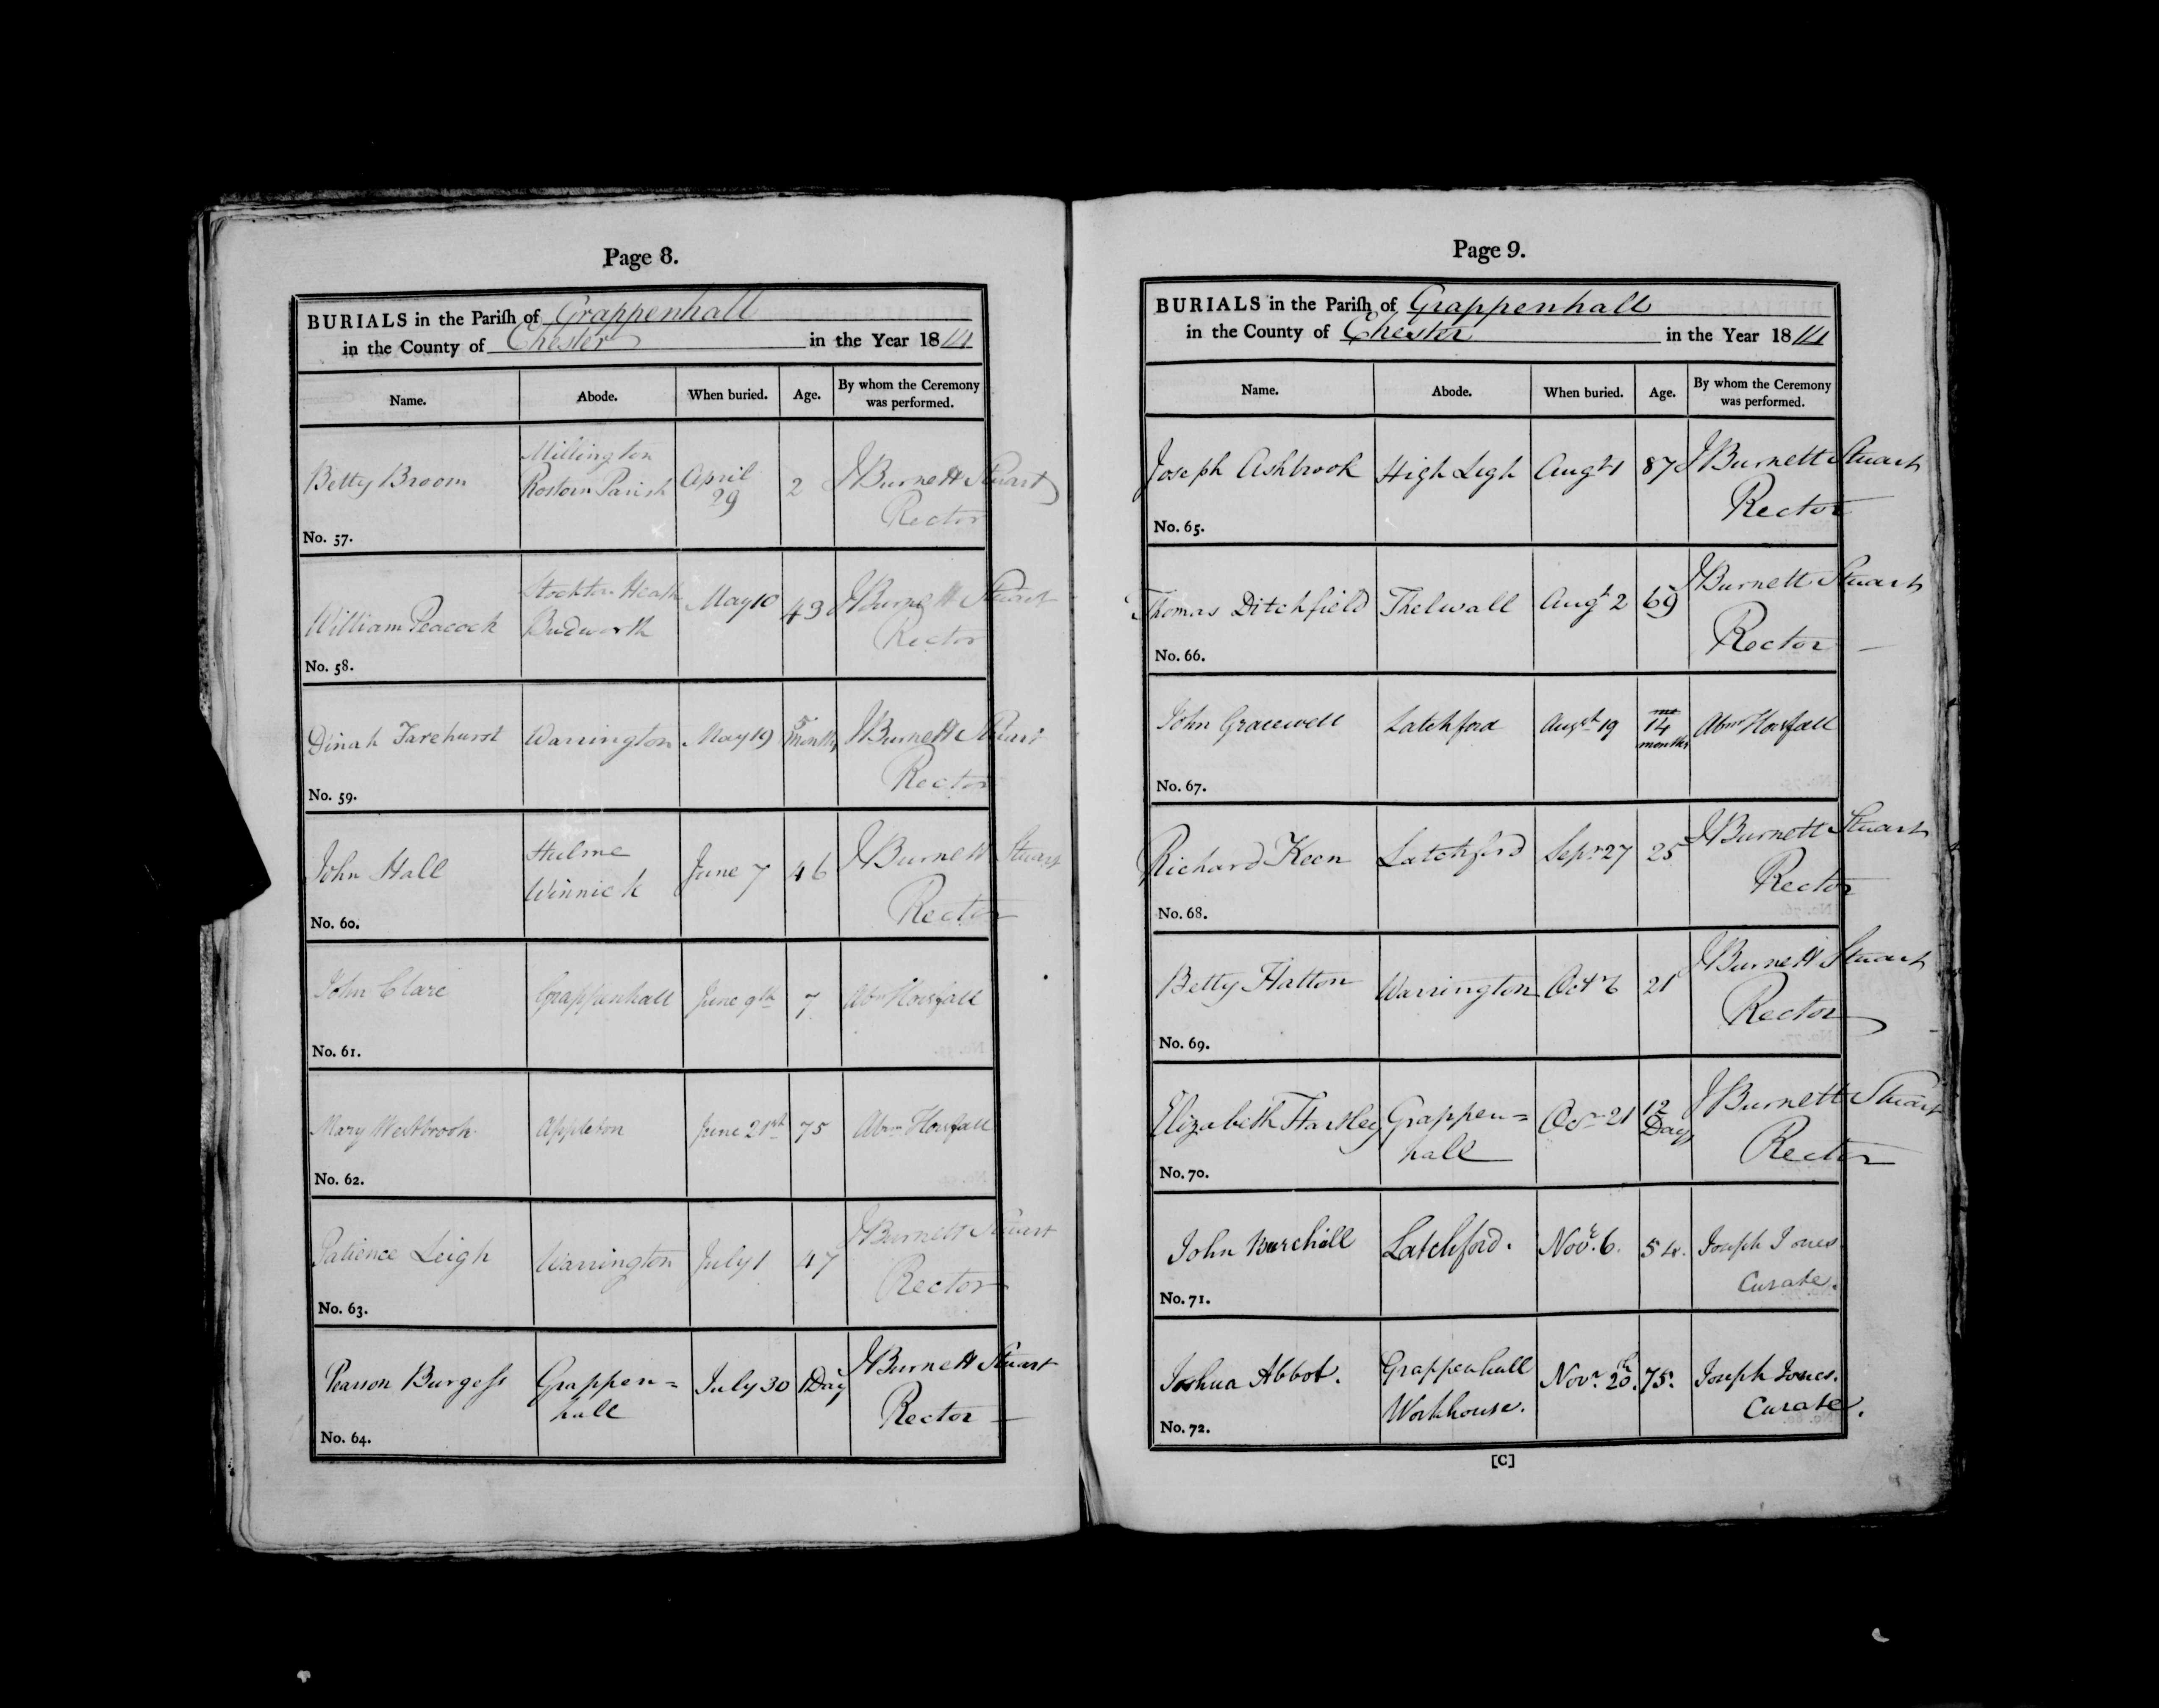 Page 8.
BURIALS in the Pariſh of Grappenhall
in the County of Chester in the Year 1814
Name. Abode. When buried. Age. By whom the Ceremony was performed.
Betty Broom Millington Rostern Parish April 29 2 J Burnett Stuart Rector
No. 57.
William Peacock Stockton Heath Budworth May 10 43 J Burnett Stuart Rector
No. 58.
Dinah Farehurst Warrington May 19 5 months J Burnett Stuart Rector
No. 59.
John Hall Hulme Winnick June 7 46 J Burnett Stuart Rector
No. 60.
John Clare Grappenhall June 9th 7 Abm Horsfall
No. 61.
Mary Westbrook Appleton June 21st 75 Abm Horsfall
No. 62.
Patience Leigh Warrington July 1 47 J Burnett Stuart Rector
No. 63.
Pearson Burgeſs Grappen= hall July 30 1 Day J Burnett Stuart Rector
No. 64.
Page 9.
BURIALS in the Pariſh of Grappenhall
in the County of Chester in the Year 1814
Name. Abode. When buried. Age. By whom the Ceremony was performed.
Joseph Ashbrook High Legh Augt 1 87 J Burnett Stuart Rector
No. 65.
Thomas Ditchfield Thelwall Augt 2 69 J Burnett Stuart Rector
No. 66.
John Gracewell Latchford Augst 19 14 months Abm Horsfall
No. 67.
Richard Keen Latchford Sepr 27 25 J Burnett Stuart Rector
No. 68.
Betty Hatton Warrington Octr 6 21 J Burnett Stuart Rector
No. 69.
Elizabeth Hartley Grappen= hall Ocr 21 12 Days J Burnett Stuart Rector
No. 70.
John Burchall Latchford. Novr. 6. 54. Joseph Jones Curate.
No. 71.
Joshua Abbot. Grappenhall Workhouse. Novr. 20th. 75. Joseph Jones. Curate.
No. 72.
[C]